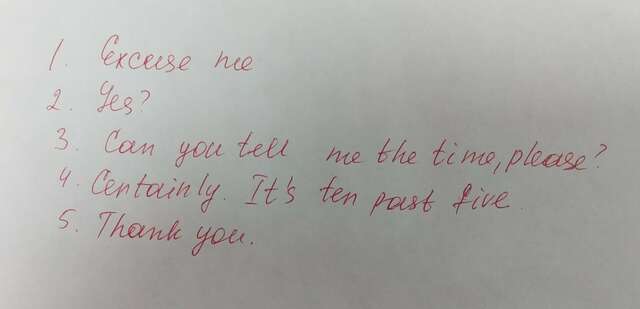 1. Excuse me
2. Yes?
3. Can you tell me the time, please?
4. Certainly. It's ten past five.
5. Thank you.